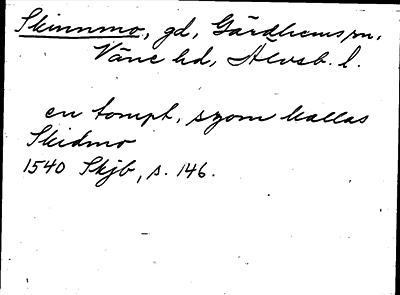 Skinnmo, gd, Gärdhems sn,
Väne hd, Älvsb. l.
en tompt, szom kallas
Skidmo
1540 Skjb, s. 146.